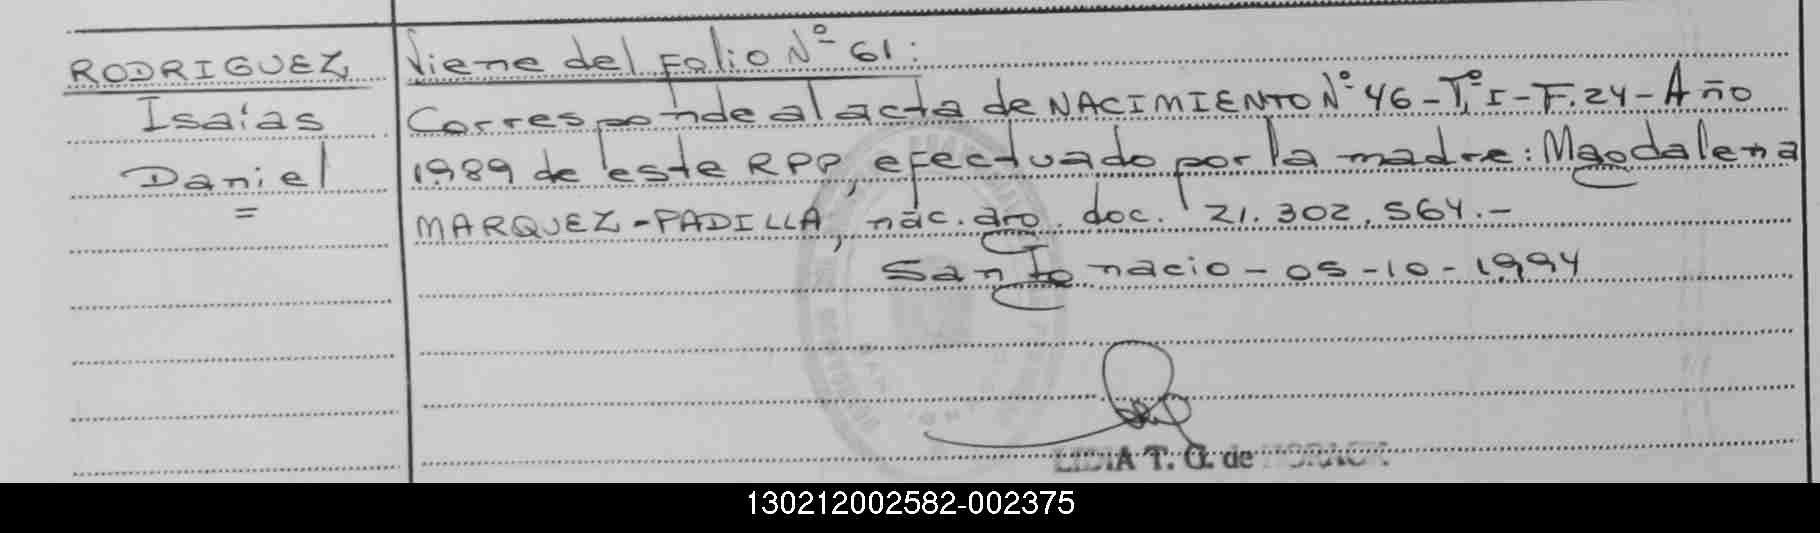 RODRIGUEZ
Isaías
Daniel
=
Viene del Folio Nº 61:
Corresponde al acta de NACIMIENTO Nº 46-Tº I-F.24-Año
1989 de este RPP, efectuado por la madre: Magdalena
MARQUEZ-PADILLA, nac. arg. doc. 21.302.564.-
San Ignacio-05-10-1994
LIDIA T. G. de
130212002582-002375